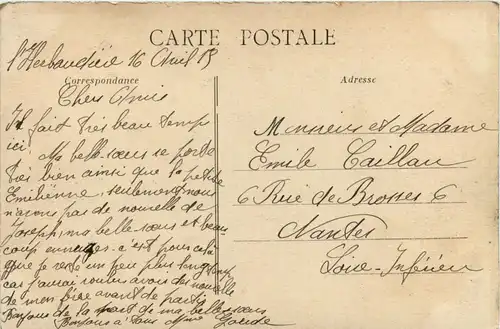 CARTE POSTALE
l'Herbaudière 16 Avril 15
Correspondance
Adresse
Chers Amis
Il fait très beau temps
ici. Ma belle sœur se porte
très bien ainsi que la petite
Emilienne, seulement nous
n'avons pas de nouvelle de
Joseph, ma belle sœur est beau
coup ennuyée. c'est pour cela
que je reste un peu plus longtemp
car j'aurai voulu avoir des nouvelle
de mon frère avant de partir
Bonjour de la part de ma belle sœur
Bonjour à tous
Monsieur et Madame
Emile Caillau
6 Rue de Brosses 6
Nantes
Loire-Inférieu